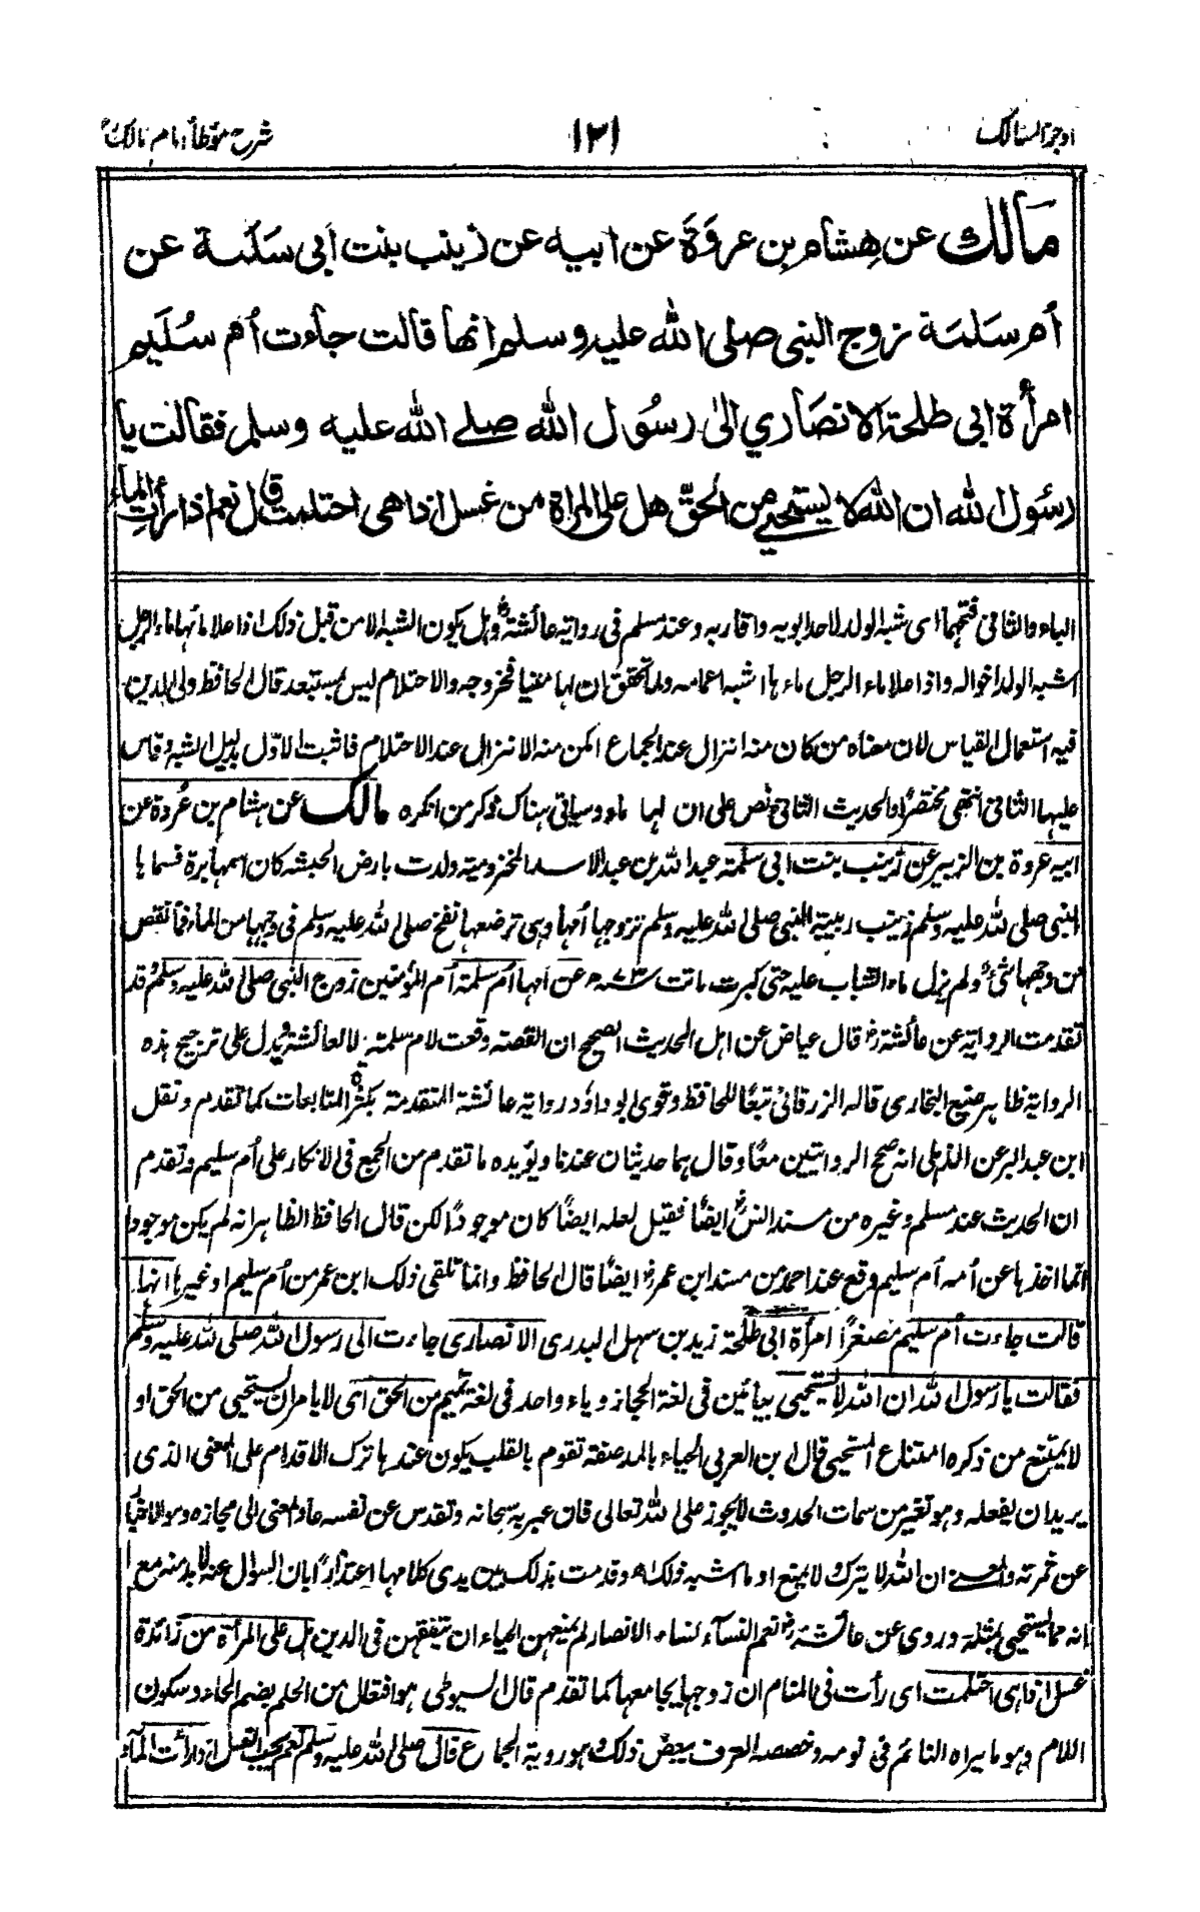 اوجز المسالك
١٢١
شرح مؤطا امام مالك
مَالك عن هِشام بن عروَة عن ابيه عن زينب بنت ابي سَلَمة عن
أم سَلمَة زوج النبي صلى الله عليه وسلم انها قالت جاءت أم سُلَيم
امرأة ابي طلحة الانصَاري الىٰ رسُول الله صلے الله عليه وسلم فقالت يا
رسُول الله ان الله لا يستحيي من الحقّ هل على المرأة من غسل اذا هي احتلمت قال نعم اذا رأت الماء
الباء والثاني فتحهما اى شبه الولد لاحد ابويه واقاربه وعند مسلم في رواية عائشة وهل يكون الشبه الا من قبل ذلك اذا علا ماؤها ماء الرجل
اشبه الولد اخواله واذا علا ماء الرجل ماءها اشبه اعمامه ولما تحقق ان لها منيا فخروجه والاحتلام ليس بمستبعد قال الحافظ ولى الدين
فيه استعمال القياس لان معناه من كان منه انزال عند الجماع امكن منه الانزال عند الاحتلام فاثبت الاوّل بدليل الشبه وقاس
عليها الثاني انتهى مختصرًا والحديث الثاني نص على ان لها ماء وسياتي هناك ذكر من انكره مالك عن هشام بن عُروة عن
ابيه عروة بن الزبير عن زينب بنت ابى سلمة عبد الله بن عبد الاسد المخزومية ولدت بارض الحبشة كان اسمها برة فسماها
النبى صلى الله عليه وسلم زينب ربيبة النبي صلى الله عليه وسلم تزوجها امها وهى ترضعها نفخ صلى الله عليه وسلم في وجهها من الماء فما نقص
من وجهها شئ ولم يزل ماء الشباب عليه حتى كبرت ماتت ٧٣ﻫ عن امها ام سلمة أم المؤمنين زوج النبى صلى الله عليه وسلم قد
تقدمت الرواية عن عائشة قال عياض عن اهل الحديث الصحيح ان القصة وقعت لام سلمة لا لعائشة ويدل على ترجيح هذه
الرواية ظاهر صنيع البخارى قاله الزرقاني تبعًا للحافظ وقوى ابو داؤد رواية عائشة المتقدمة بكثرة المتابعات كما تقدم ونقل
ابن عبد البر عن الذهلى انه صحح الروايتين معًا وقال هما حديثان عندنا ويؤيده ما تقدم من الجمع في الانكار على أم سليم وتقدم
ان الحديث عند مسلم وغيره من مسند انس ايضًا فقيل لعله ايضًا كان موجودًا لكن قال الحافظ الظاهر انه لم يكن موجودا
انما اخذها عن أمه أم سليم وقع عند احمد من مسند ابن عمر ايضًا قال الحافظ وانما تلقى ذلك ابن عمر من أم سليم او غيرها انها
قالت جاءت أم سليم مصغرًا امرأة ابى طلحة زيد بن سهل البدرى الانصارى جاءت الى رسول الله صلى الله عليه وسلم
فقالت يا رسول الله ان الله لا يستحيى بيائين في لغة الحجاز وياء واحد في لغة تميم من الحق اى لا يامر ان يستحيى من الحق او
لا يمتنع من ذكره امتناع المستحيى قال ابن العربي الحياء بالمد صفة تقوم بالقلب يكون عندها ترك الاقدام على المعنى الذى
يريد ان يفعله وهو تغير من سمات الحدوث لا يجوز على الله تعالى فان عبر به سبحانه وتقدس عن نفسه عاد المعنى الى مجازه وهو الاخبار
عن ثمرته والمعنى ان الله لا يترك لا يمتنع او ما اشبه ذلك اه وقدمت بذلك بين يدى كلامها اعتذارًا بان السؤال عنه لا بد منه مع
انه مما يستحيى بمثله وروى عن عائشة نعم النساء نساء الانصار لم يمنعهن الحياء ان يتفقهن في الدين هل على المرأة من زائدة
غسل اذا هى احتلمت اى رأت في المنام ان زوجها يجامعها كما تقدم قال السيوطى هو افتعال من الحلم بضم الحاء وسكون
اللام وهو ما يراه النائم في نومه وخصصه العرف ببعض ذلك وهو روية الجماع قال صلى الله عليه وسلم نعم يجب الغسل اذا رأت الماء